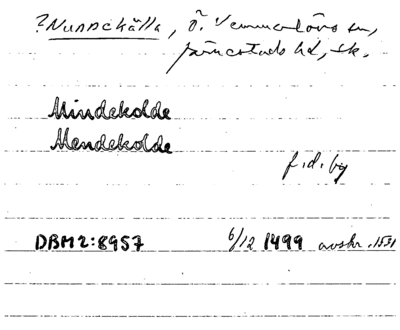 ?Nunnekälla, Ö. Vemmerlövs sn,
Järrestads hd, Sk.
Mindekolde
Mendekolde
f.d. by
DBM 2:8957 6/12 1499 avskr. 1531